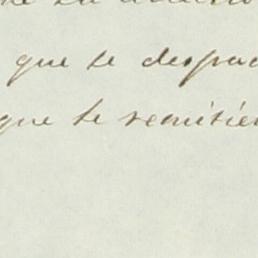 que se despac
que se remitie